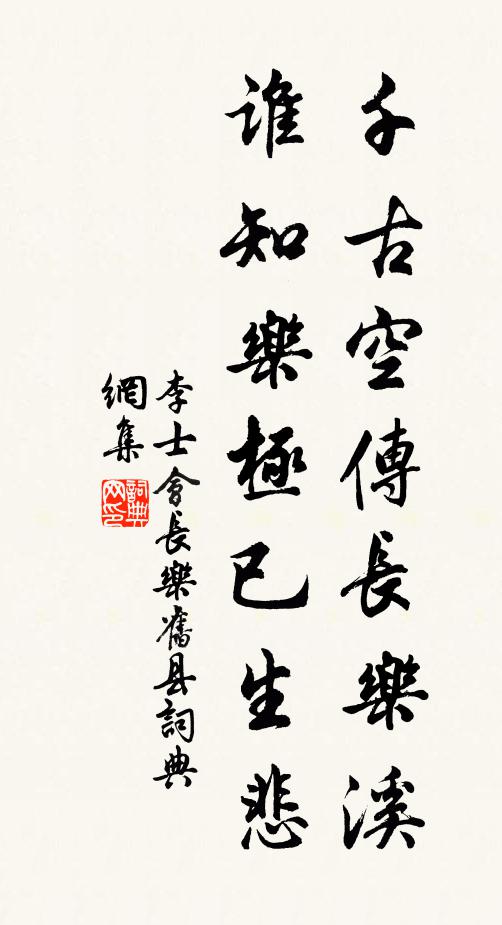 千古空傳長樂溪
誰知樂極已生悲
李士會長樂舊县詞典
網集
詞典
网印